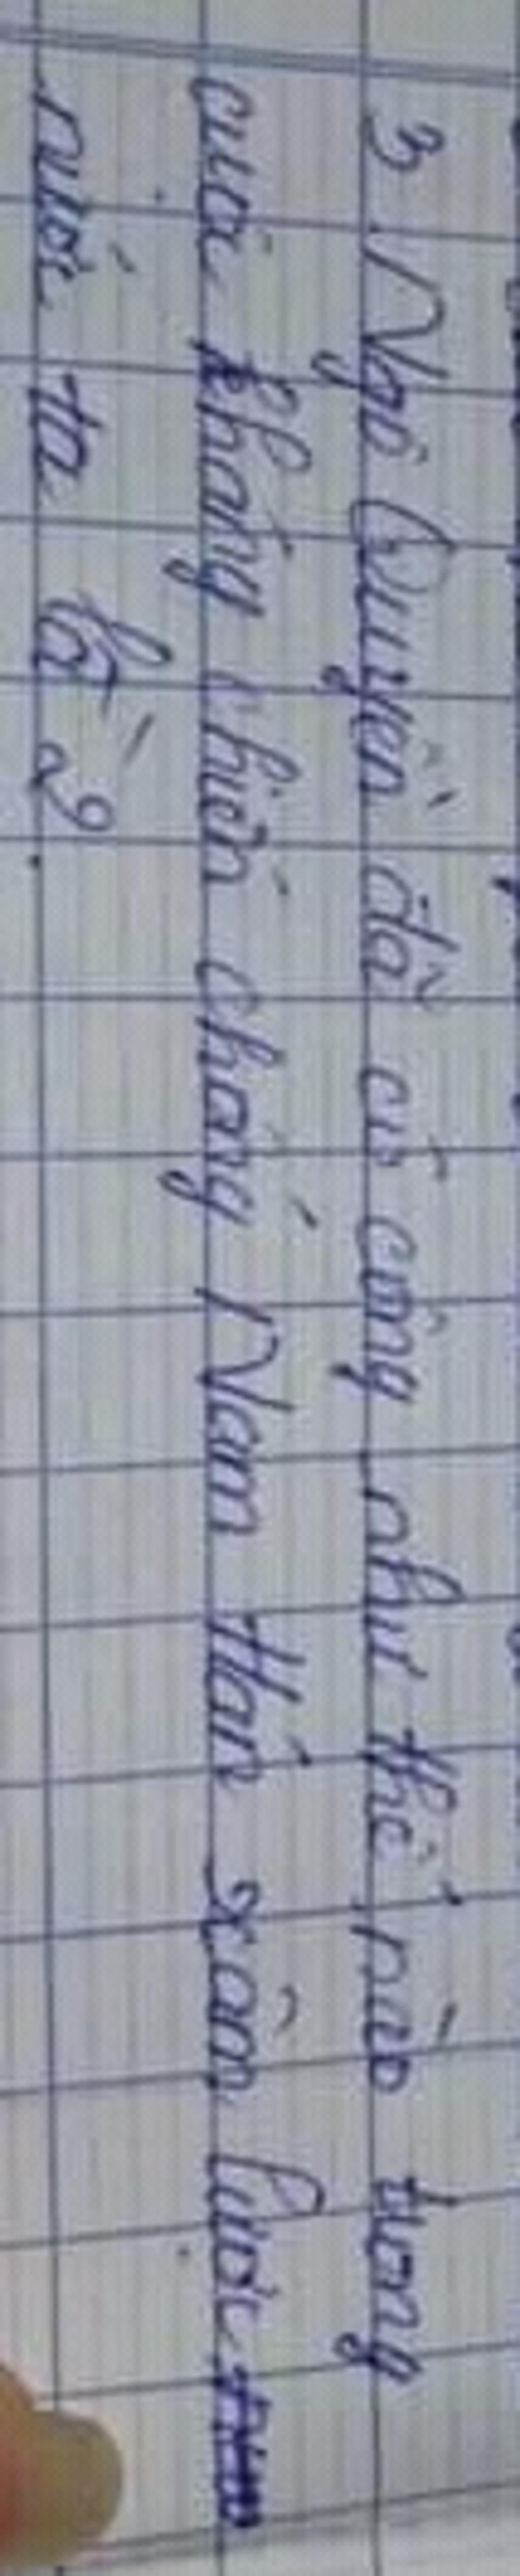 3. Ngô Quyền đã có công như thế nào trong
cuộc kháng chiến chống Nam Hán xâm lược
nước ta là ?